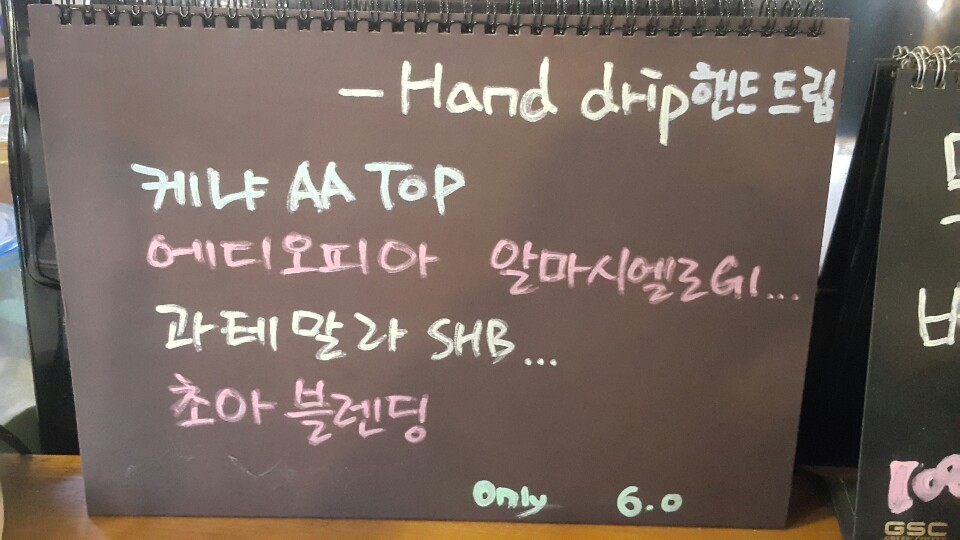 - Hand drip 핸드드립
케냐 AA TOP
에디오피아 알마시엘로 G1...
과테말라 SHB...
초아 블렌딩
Only 6.0
GSC